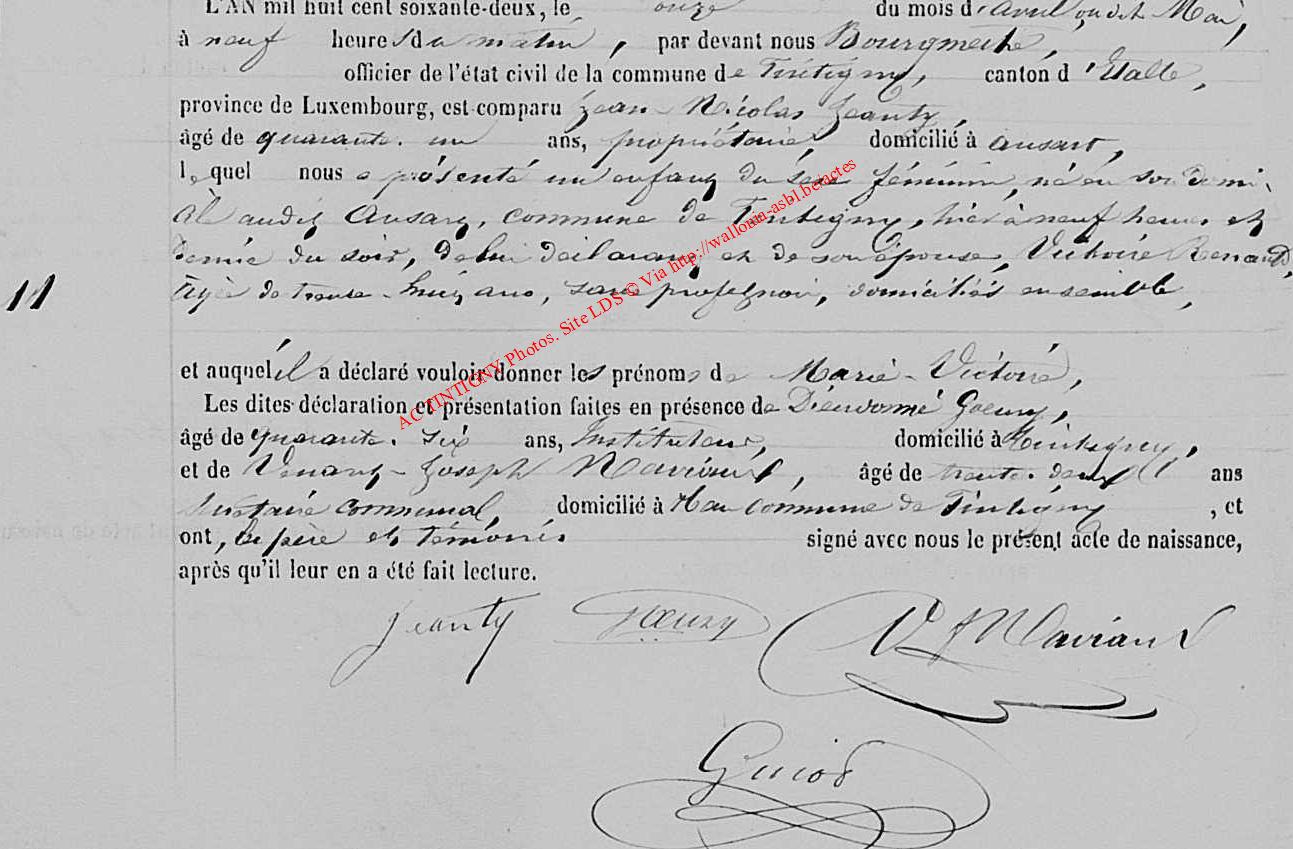 L'AN mil huit cent soixante-deux, le onze du mois d'avril, ou dit Mai,
à neuf heures du matin, par devant nous Bourgmestre,
officier de l'état civil de la commune de Tintigny, canton d'Etalle,
province de Luxembourg, est comparu Jean-Nicolas Jeanty,
âgé de quarante-un ans, propriétaire domicilié à Ansart,
lequel nous a présenté un enfant du sexe féminin, né en son domi-
cile audit Ansart, commune de Tintigny, hier à neuf heures et
demie du soir, de lui déclarant et de son épouse, Victoire Renauld,
âgée de trente-huit ans, sans profession, domiciliés ensemble,
11
et auquel il a déclaré vouloir donner les prénoms de Marie-Victoire,
Les dites déclaration et présentation faites en présence de Dieudonné Goeury,
âgé de quarante-six ans, Instituteur, domicilié à Tintigny,
et de Venant-Joseph Maviaux, âgé de trente-deux ans
secrétaire communal, domicilié à Han commune de Tintigny, et
ont, le père et témoins signé avec nous le présent acte de naissance,
après qu'il leur en a été fait lecture.
Jeanty Goeury V J Maviaux
Guiot
ACTINTIGNY Photos. Site LDS © Via http://wallonia-asbl.be/actes